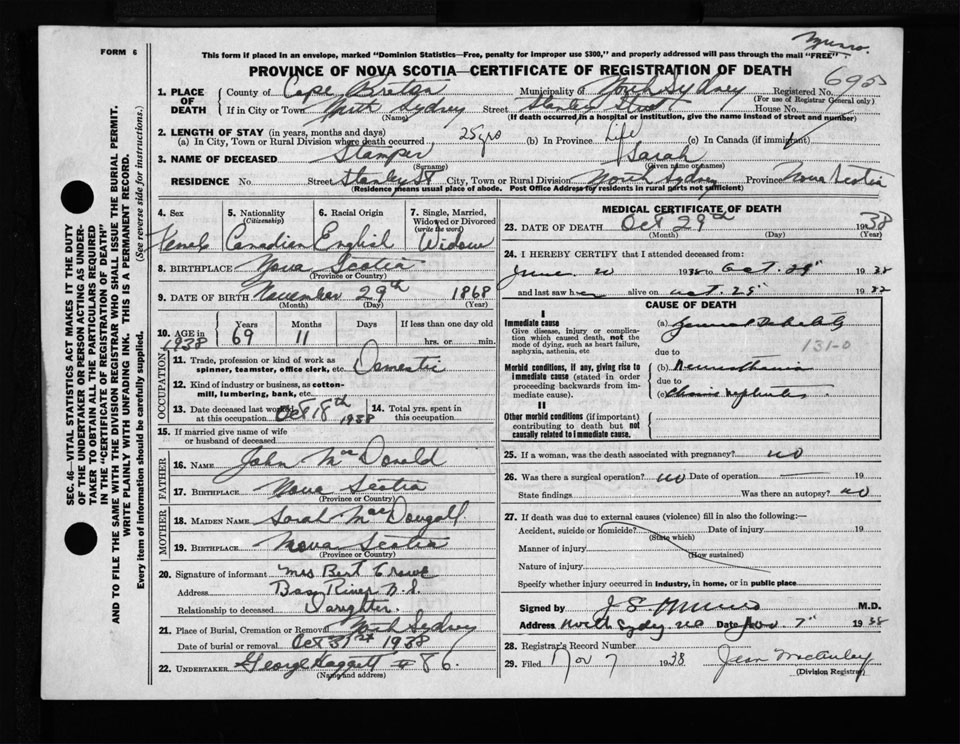 Munro.
FORM 6
This form if placed in an envelope, marked "Dominion Statistics—Free, penalty for improper use $300," and properly addressed will pass through the mail "FREE".
PROVINCE OF NOVA SCOTIA—CERTIFICATE OF REGISTRATION OF DEATH
6955
1. PLACE OF DEATH
County of Cape Breton Municipality of North Sydney Registered No.
(For use of Registrar General only)
If in City or Town North Sydney Street Stanley Street House No.
(Name) (If death occurred in a hospital or institution, give the name instead of street and number)
2. LENGTH OF STAY (in years, months and days)
(a) In City, Town or Rural Division where death occurred 25 yrs (b) In Province Life (c) In Canada (if immigrant)
3. NAME OF DECEASED Stamper Sarah
(Surname) (Given name or names)
RESIDENCE No. Street Stanley St City, Town or Rural Division North Sydney Province Nova Scotia
(Residence means usual place of abode. Post Office Address for residents in rural parts not sufficient)
SEC. 46—VITAL STATISTICS ACT MAKES IT THE DUTY
OF THE UNDERTAKER OR PERSON ACTING AS UNDER-
TAKER TO OBTAIN ALL THE PARTICULARS REQUIRED
IN THE "CERTIFICATE OF REGISTRATION OF DEATH"
AND TO FILE THE SAME WITH THE DIVISION REGISTRAR WHO SHALL ISSUE THE BURIAL PERMIT.
WRITE PLAINLY WITH UNFADING INK. THIS IS A PERMANENT RECORD.
Every item of information should be carefully supplied. (See reverse side for instructions.)
4. Sex
Female
5. Nationality
(Citizenship)
Canadian
6. Racial Origin
English
7. Single, Married, Widowed or Divorced
(write the word)
Widow
8. BIRTHPLACE Nova Scotia
(Province or Country)
9. DATE OF BIRTH November 29th 1868
(Month) (Day) (Year)
10. AGE in 1938
Years Months Days If less than one day old
69 11 hrs. or min.
OCCUPATION
11. Trade, profession or kind of work as
spinner, teamster, office clerk, etc. Domestic
12. Kind of industry or business, as cotton-
mill, lumbering, bank, etc.
13. Date deceased last worked
at this occupation Oct 18th 1938
14. Total yrs. spent in
this occupation
15. If married give name of wife
or husband of deceased
FATHER
16. NAME John MacDonald
17. BIRTHPLACE Nova Scotia
(Province or Country)
MOTHER
18. MAIDEN NAME Sarah MacDougall
19. BIRTHPLACE Nova Scotia
(Province or Country)
20. Signature of informant Mrs Bert Crowe
Address Bass River N.S.
Relationship to deceased Daughter.
21. Place of Burial, Cremation or Removal North Sydney
Date of burial or removal Oct 31st 1938
22. UNDERTAKER George Haggett #86.
(Name and address)
MEDICAL CERTIFICATE OF DEATH
23. DATE OF DEATH Oct 29th 1938
(Month) (Day) (Year)
24. I HEREBY CERTIFY that I attended deceased from:
June 1938 to Oct. 29" 1938
and last saw her alive on Oct. 25"
CAUSE OF DEATH
I
Immediate cause
Give disease, injury or complica-
tion which caused death, not the
mode of dying, such as heart failure,
asphyxia, asthenia, etc
(a) General Debility
131-0
due to
Morbid conditions, if any, giving rise to
immediate cause (stated in order
proceeding backwards from im-
mediate cause).
(b) Neurasthenia
due to
(c) Chronic Nephritis
II
Other morbid conditions (if important)
contributing to death but not
causally related to immediate cause.
25. If a woman, was the death associated with pregnancy? no
26. Was there a surgical operation? no Date of operation 19
State findings Was there an autopsy? no
27. If death was due to external causes (violence) fill in also the following:—
Accident, suicide or homicide? Date of injury 19
(State which)
Manner of injury
(How sustained)
Nature of injury
Specify whether injury occurred in industry, in home, or in public place
Signed by J. S. Munro M.D.
Address North Sydney NS Date Nov. 7" 1938
28. Registrar's Record Number
29. Filed Nov 7 1938 Jean MacAuley
(Division Registrar)